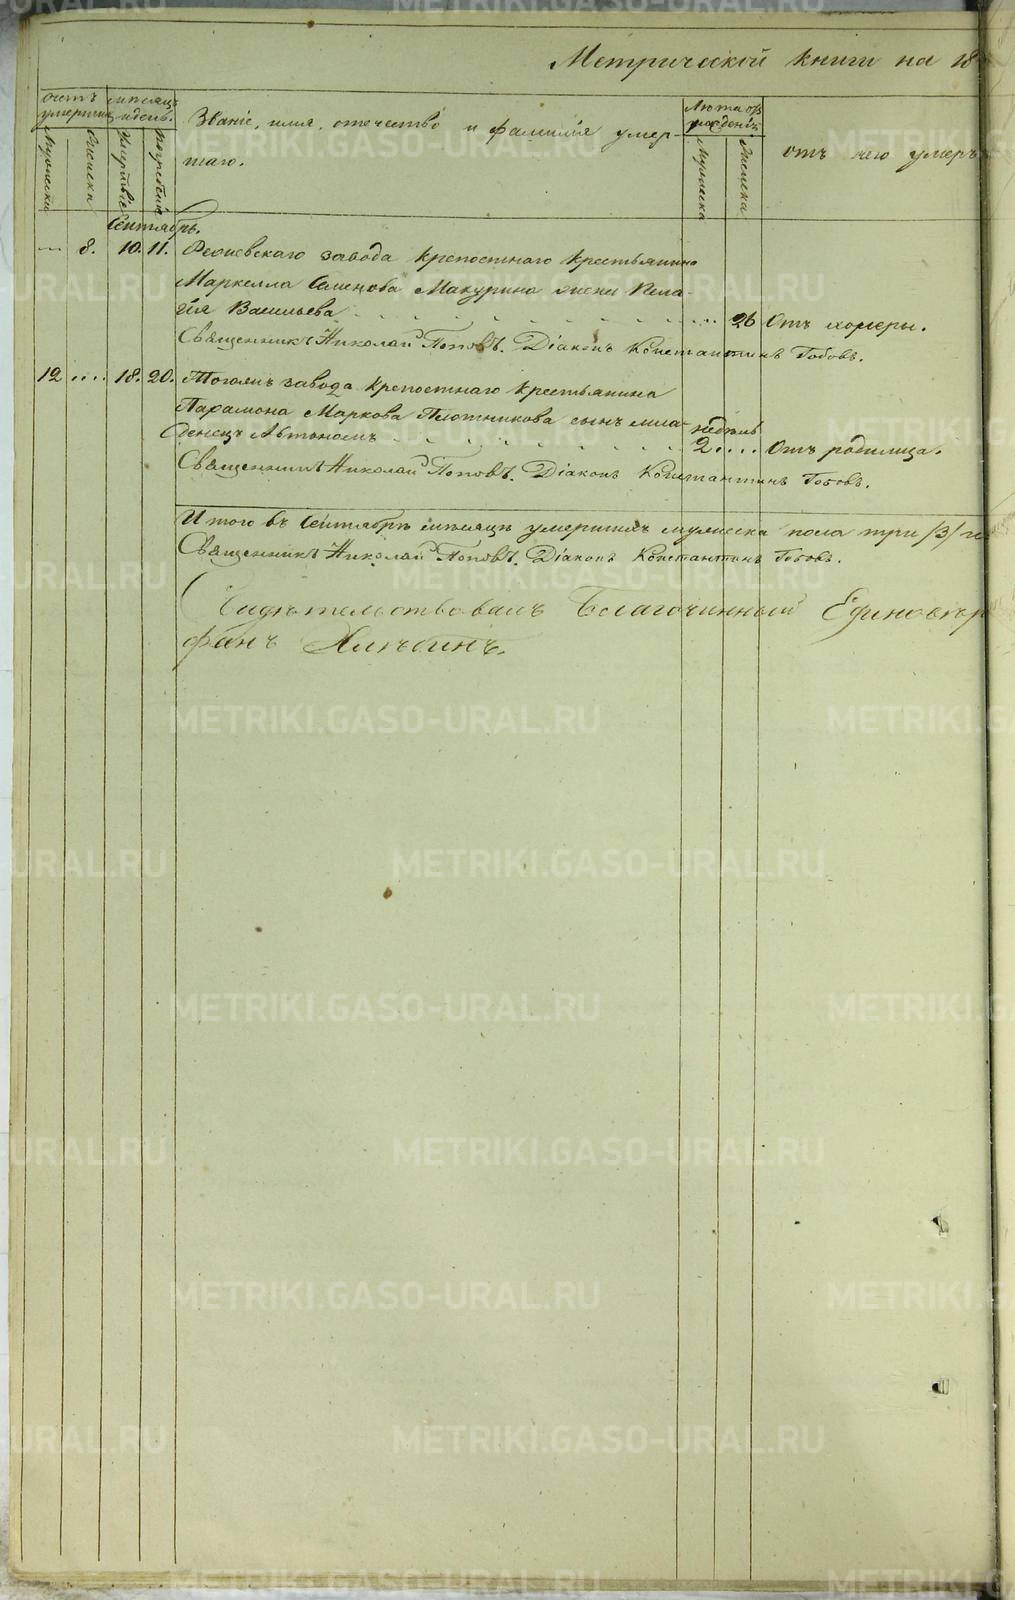 Метрической книги на 18
счетъ умершихъ
мѣсяцъ и день.
Мужеска
Женска
Смерти
Погребенія
Званіе, имя, отечество и фамилія умер-
шаго.
Лѣта от рожденія
Мужеска
Женска
отъ чего умеръ
Сентябрь.
... 8. 10. 11. Режевскаго завода крепостнаго крестьянина
Маркелла Семенова Макурина жена Пела-
гѣя Васильева . . . . . . . . ... 26 Отъ холеры.
Священникъ Николай Поповъ. Діаконъ Константинъ Гобовъ.
12 .... 18. 20. Тогожъ завода крепостнаго крестьянина
Парамона Маркова Плотникова сынъ мла-
денецъ Автономъ . . . . . . . недѣль 2. ... Отъ родимца.
Священникъ Николай Поповъ. Діаконъ Константинъ Гобовъ.
Итого въ Сентябрѣ мѣсяцѣ умершихъ мужеска пола три /3/
Священникъ Николай Поповъ. Діаконъ Константинъ Гобовъ.
Свидѣтельствовалъ Благочинный Единовѣр
фанъ Хлѣбинъ.
METRIKI.GASO-URAL.RU